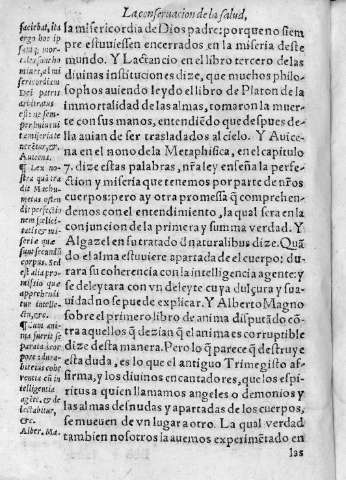 La conseruacion de la salud,
la misericordia de Dios padre: porque no siem
pre estuuiessen encerrados en la miseria deste
mundo. Y Lactancio en el libro tercero de las
diuinas instituciones dize, que muchos philo-
sophos auiendo leydo el libro de Platon de la
immortalidad de las almas, tomaron la muer-
te con sus manos, entendiēdo que despues de-
lla auian de ser trasladados al cielo. Y Auice-
na en el nono de la Metaphisica, en el capitulo
7. dize estas palabras, nr̃a ley enseña la perfe-
ction y miseria que tenemos por parte de nr̃os
cuerpos: pero ay otra promessa q̄ comprehen-
demos con el entendimiento, la qual sera en la
conjuncion de la primera y summa verdad. Y
Algazel en su tratado d̄ naturalibus dize. Quā
do el alma estuuiere apartada de el cuerpo: du-
rara su coherencia con la intelligencia agente: y
se deleytara con vn deleyte cuya dulçura y sua-
uidad no se puede explicar. Y Alberto Magno
sobre el primero libro de anima disputādo cō-
tra aquellos q̄ dezian q̄ el anima es corruptible
dize desta manera. Pero lo q̄ parece q̄ destruye
esta duda, es lo que el antiguo Trimegisto af-
firma, y los diuinos encantadores, que los espi-
ritus a quien llamamos angeles o demonios y
las almas desnudas y apartadas de los cuerpos,
se mueuen de vn lugar a otro. La qual verdad
tambien nosotros la auemos experimētado en
las
faciebat, ita
ergo hoc ip
miner, al mi
sericordiam
Dei patris
arbitratus
est: ne sem-
per huius ui
tæ miseria te
neretur, &c.
Auicena.
¶ Lex no-
stra quã tra
dit Machu-
metus osten
dit perfectio
nem fœlici-
tatis et mi-
seriæ quæ
sunt secundũ
corpus. Sed
est alia pro-
missio quæ
apprehendi
tur intelle-
ctu, &c.
¶ Cum ani
ma fuerit se
parata à cor
pore: dura-
bit eius cohæ
rentia cũ in
telligentia
agẽte. & de
lectabitur,
&c.
Alber. Ma.